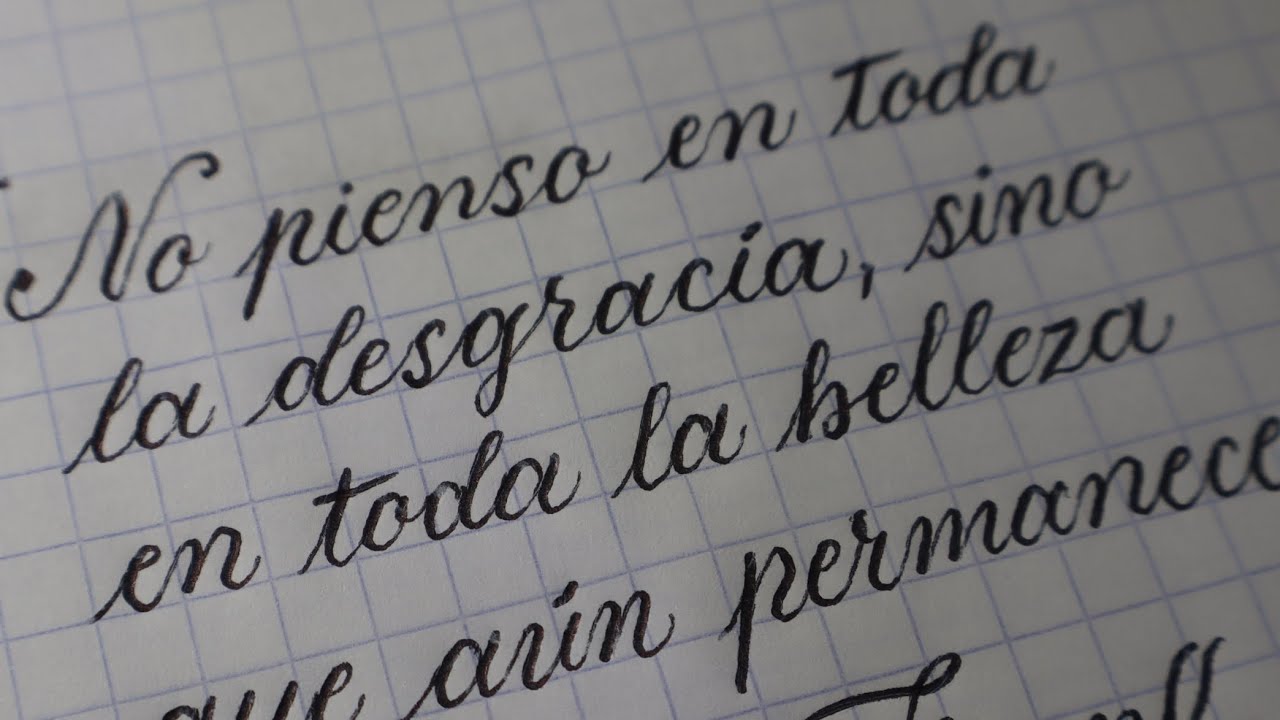 No pienso en toda
la desgracia, sino
en toda la belleza
que aún permanece